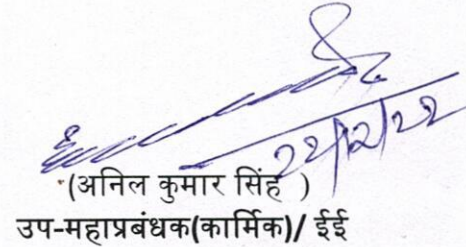 22/2/22
(अनिल कुमार सिंह )
उप-महाप्रबंधक(कार्मिक)/ ईई